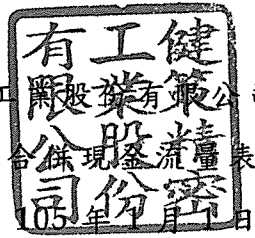 健策精密
工業股份
有限公司
工業股份有限公
合併現金流量表
105 年 1 月 1 日